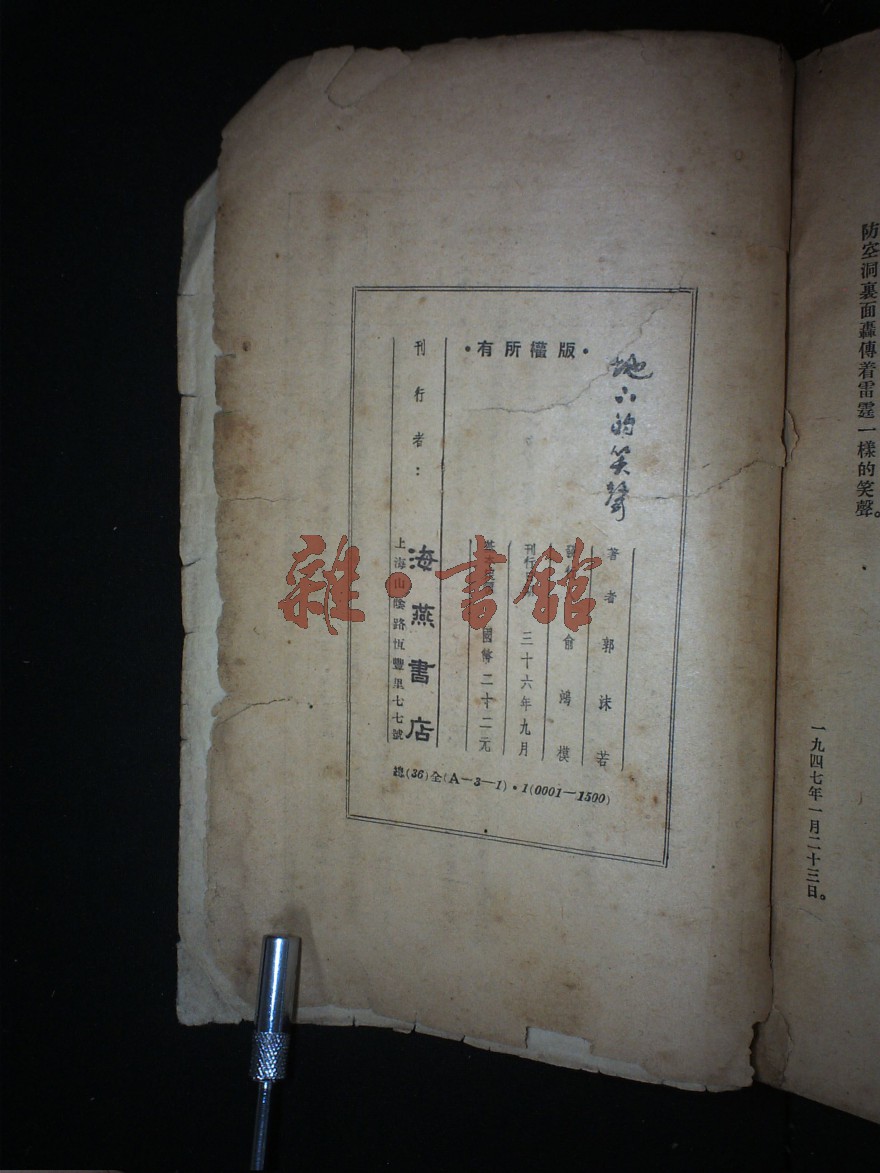 防空洞裏面轟傳着雷霆一樣的笑聲。
一九四七年一月二十三日。
地下的笑聲
・版權所有・
著者 郭沫若
俞鴻模
刊行 三十六年九月
國幣二十二元
刊行者：
海燕書店
上海山陰路恆豐里七七號
總(36)全(A—3—1)・1(0001—1500)
雜・書館